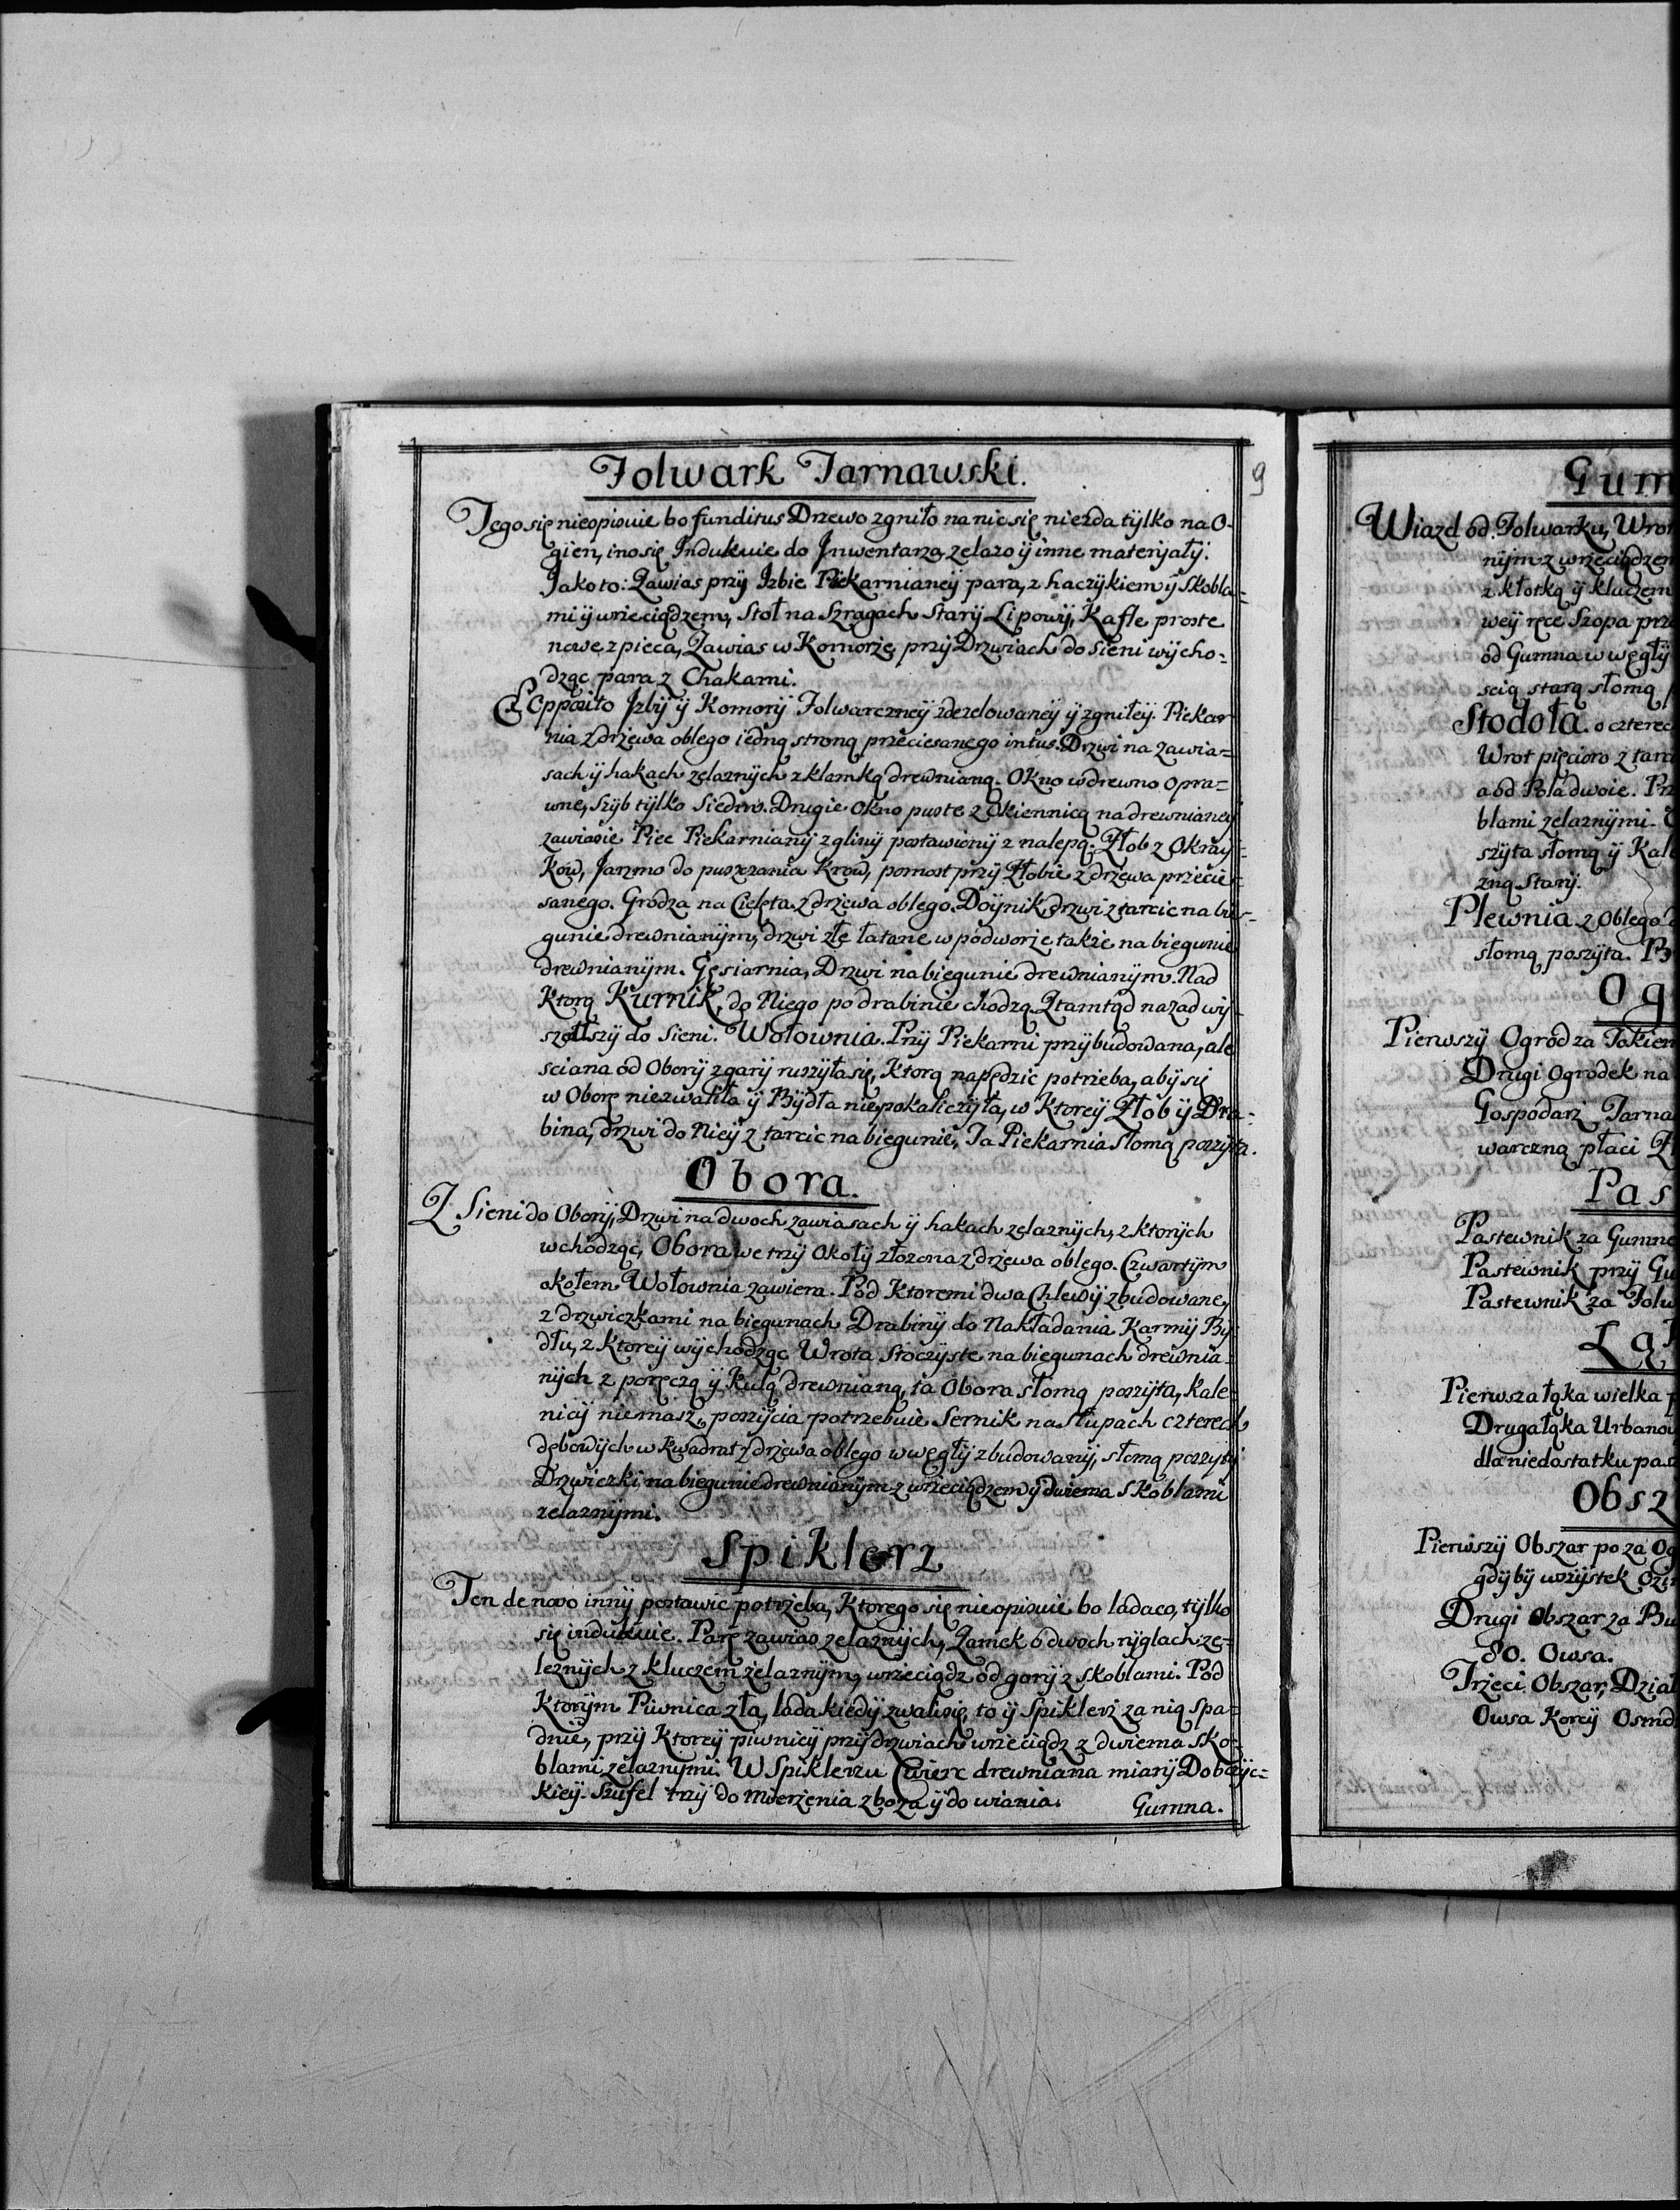 Folwark Tarnawski.
9
Tego się nieopisuie bo funditus Drzewo zgniło na nic się niezda tylko na O-
gien, ino się Indukuie do Jnwentarza zelazo ÿ inne materÿałÿ.
Jako to: Zawias przÿ Izbie Piekarnianeÿ para, z haczÿkiem ÿ Skobla=
mi ÿ wrzeciądzem, Stoł na Szragach Starÿ Lipowÿ, Kafle proste
nowe z pieca, Zawias w Komorze przÿ Drzwiach do Sieni wÿcho=
dząc para z Chakami.
Ex Opposito Izbÿ ÿ Komorÿ Folwarczneÿ zdezelowaneÿ ÿ zgniłeÿ. Piekar
nia z drzewa oblego iedną stroną przeciesanego intus. Drzwi na zawia=
sach ÿ hakach zelaznÿch z klamką drewnianą. Okno w drewno opra=
wne, szÿb tÿlko Siedm. Drugie Okno puste z Okiennicą na drewnianeÿ
zawiasie Piec Piekarnianÿ z glinÿ postawionÿ z nalepą. Złob z Okraÿ=
kow, Jarzmo do puszczania Krow, pomost przÿ Złobie z drzewa przecie=
sanego. Grodza na Cielęta z drzewa oblego. Doÿnik, drzwi z tarcic na bie=
gunie drewnianÿm, drzwi złe łatane w podworze takze na biegunie
drewnianÿm. Gęsiarnia, Drzwi na biegunie drewnianÿm. Nad
Ktorą Kurnik, do Niego po drabinie chodzą. Ztamtąd nazad wÿ=
szedłszÿ do Sieni. Wołownia. Przÿ Piekarni przÿbudowana, ale
sciana od Oborÿ zgarÿ ruszÿła się, Ktorą napędzic potrzeba, abÿ się
w Oborę niezwaliła ÿ Bÿdła niepokaliczÿła, w Ktoreÿ Złob ÿ Dra=
bina, drzwi do Nieÿ z tarcic na biegunie, Ta Piekarnia słomą poszÿta.
Obora.
Z Sieni do Oborÿ, Drzwi na dwoch zawiasach ÿ hakach zelaznÿch, z ktorÿch
wchodząc, Obora we trzÿ Okołÿ złozona z drzewa oblego. Czwartÿm
okołem Wołownia zawiera. Pod Ktoremi dwa Chlewÿ zbudowane,
z drzwiczkami na biegunach Drabinÿ do Nakładania Karmÿ Bÿ=
dłu, z Ktoreÿ wÿchodząc Wrota Stoczÿste na biegunach drewnia=
nÿch z poręczą ÿ kulą drewnianą, ta Obora słomą poszÿta, Kale=
nicÿ niemasz, poszÿcia potrzebuie Sernik na Słupach czterech
dębowÿch w kwadrat z drzewa oblego w węgłÿ zbudowanÿ, słomą poszÿtÿ
Drzwiczki na biegunie drewnianÿm z wrzeciądzem ÿ dwiema Skoblami
zelaznÿmi.
Spiklerz
Ten de novo innÿ postawic potrzeba, Ktorego się nieopisuie bo ladaco, tÿlko
się indukuie. Parę zawias zelaznÿch, Zamek o dwoch rÿglach ze=
leznÿch z kluczem zelaznÿm, wrzeciądz od gorÿ z skoblami. Pod
Ktorÿm Piwnica zła, lada kiedÿ zwali się, to ÿ Spiklerz za nią spa=
dnie, przÿ Ktoreÿ piwnicÿ przÿ drzwiach wrzeciądz z dwiema sko=
blami zelaznÿmi. W Spiklerzu Cwierc drewniana miarÿ Dobczÿc=
kieÿ. Szufel trzÿ do mierzenia zboza ÿ do wiania.
Gumna.
Gum
Wiazd od Folwarku, Wrot
nÿm z wrzeciądzem
z kłotką ÿ kluczem
weÿ ręce Szopa prze
od Gumna w węgłÿ
scią starą słomą
Stodoła o czterec
Wrot pięcioro z tarc
a od Pola dwoie. Prz
blami zelaznÿmi.
szÿta słomą ÿ Kale
zną Starÿ.
Plewnia z Oblego
słomą poszÿta. B
Og
Pierwszÿ Ogrod za Tokiem
Drugi Ogrodek na
Gospodarz Tarna
warczną płaci Z
Pas
Pastewnik za Gumne
Pastewnik przÿ Gu
Pastewnik za Folw
Łą
Pierwsza łąka wielka p
Druga łąka Urbanow
dla niedostatku pas
Obsz
Pierwszÿ Obszar po za Og
gdÿbÿ wszÿstek Ozi
Drugi Obszar za Bu
80. Owsa.
Trzeci Obszar, Dział
Owsa Korcÿ Osmd